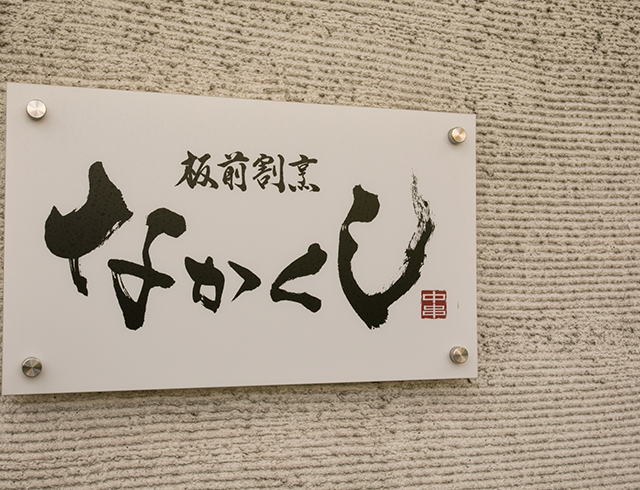 板前割烹
なかくし
中串